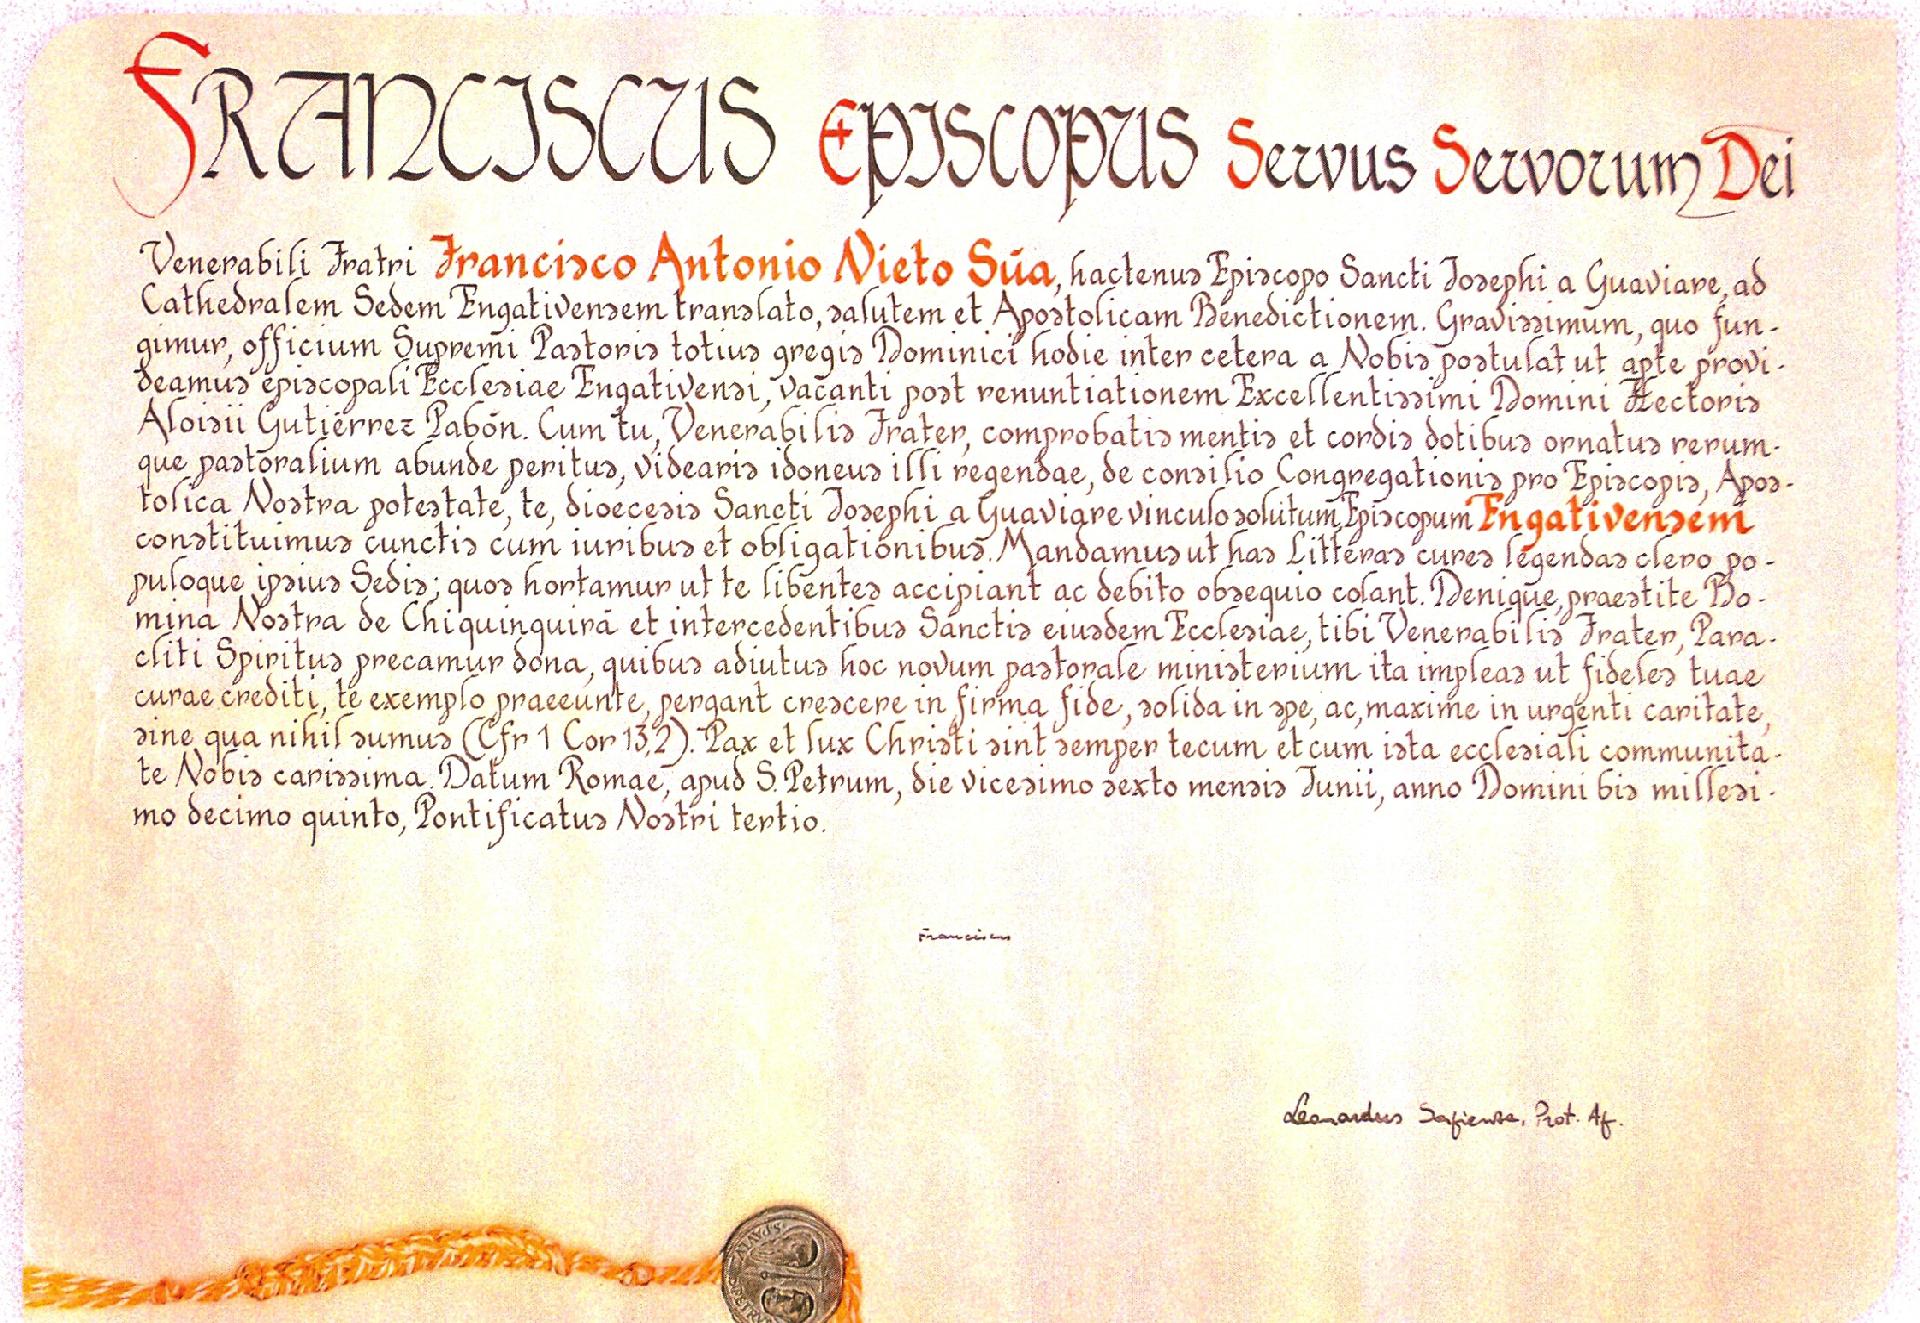 FRANCISCUS EPISCOPUS Servus Servorum Dei
Venerabili Fratri Francisco Antonio Nieto Súa, hactenus Episcopo Sancti Iosephi a Guaviare, ad
Cathedralem Sedem Engativensem translato, salutem et Apostolicam Benedictionem. Gravissimum, quo fun-
gimur, officium Supremi Pastoris totius gregis Dominici hodie inter cetera a Nobis postulat ut apte provi-
deamus episcopali Ecclesiae Engativensi, vacanti post renuntiationem Excellentissimi Domini Hectoris
Aloisii Gutiérrez Pabón. Cum tu, Venerabilis Frater, comprobatis mentis et cordis dotibus ornatus rerum-
que pastoralium abunde peritus, videaris idoneus illi regendae, de consilio Congregationis pro Episcopis, Apos-
tolica Nostra potestate, te, dioecesis Sancti Iosephi a Guaviare vinculo solutum, Episcopum Engativensem
constituimus cunctis cum iuribus et obligationibus. Mandamus ut has Litteras cures legendas clero po-
puloque ipsius Sedis; quos hortamur ut te libentes accipiant ac debito obsequio colant. Denique, praestite Do-
mina Nostra de Chiquinquirá et intercedentibus Sanctis eiusdem Ecclesiae, tibi Venerabilis Frater, Para-
cliti Spiritus precamur dona, quibus adiutus hoc novum pastorale ministerium ita impleas ut fideles tuae
curae crediti, te exemplo praeeunte, pergant crescere in firma fide, solida in spe, ac, maxime in urgenti caritate,
sine qua nihil sumus (Cfr 1 Cor 13,2). Pax et lux Christi sint semper tecum et cum ista ecclesiali communita-
te Nobis carissima. Datum Romae, apud S. Petrum, die vicesimo sexto mensis Iunii, anno Domini bis millesi-
mo decimo quinto, Pontificatus Nostri tertio.
Franciscus
Leonardus Sapienza, Prot. Ap.